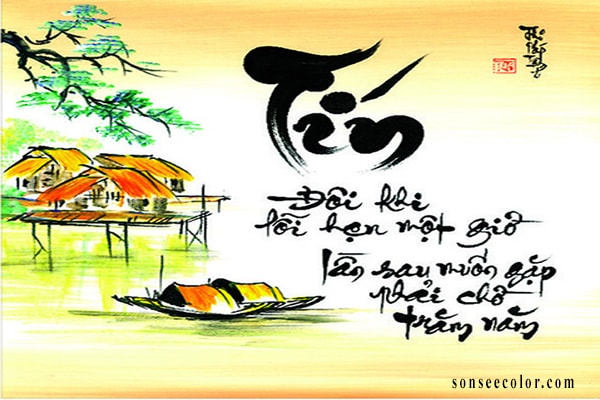 Tín
Đôi khi
lỗi hẹn một giờ
lần sau muốn gặp
phải chờ
trăm năm
sonseecolor.com